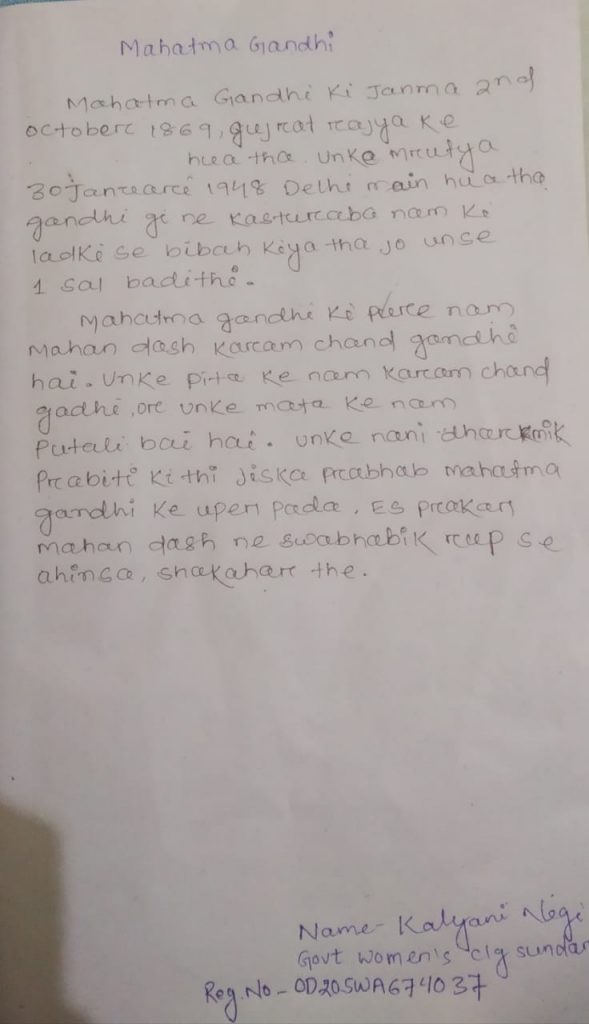 Mahatma Gandhi
Mahatma Gandhi Ki Janma 2nd
octoberc 1869, gujrcat rcajya Ke
hua tha. unke mrcutya
30 Januarcĩ 1948 Delhi main hua tha
gandhi gi ne Kasturcaba nam Ki
ladki se bibah Kiya tha jo unse
1 sal badithi.
Mahatma gandhi Ki purce nam
Mahan dash Karcam chand gandhi
hai. Unke pita ke nam Karcam chand
gadhi, orc unke mata Ke nam
Putali bai hai. unke nani dharcmik
Prcabiti Ki thi Jiska prcabhab mahatma
gandhi Ke uperc pada, ES prcakarc
mahan dash ne swabhabik rcup se
ahinsa, shakaharc the.
Name- Kalyani Negi
Govt women's clg sundar
Reg.No - OD20SWA674037